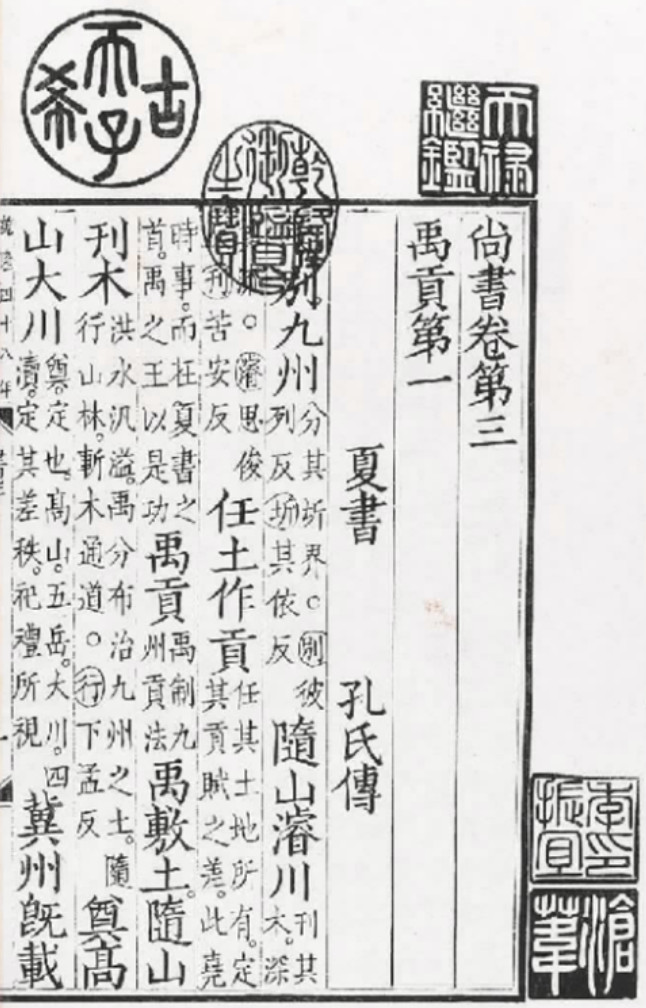 古希天子
天祿繼鑑
乾隆御覽之寶
尚書卷第三
禹貢第一
夏書 孔氏傳
別九州 分其圻界。別彼列反圻其依反 隨山濬川 刊其木。深
。濬思俊刊苦安反 任土作貢 任其土地所有。定其貢賦之差。此堯
時事。而在夏書之首。禹之王以是功 禹貢 禹制九州貢法 禹敷土。隨山
刊木 洪水汎溢。禹分布治九州之土。隨行山林。斬木通道。行下孟反 奠高
山大川 奠。定也。高山。五岳。大川。四瀆。定其差秩。祀禮所視 冀州既載
季印振宜
滄葦